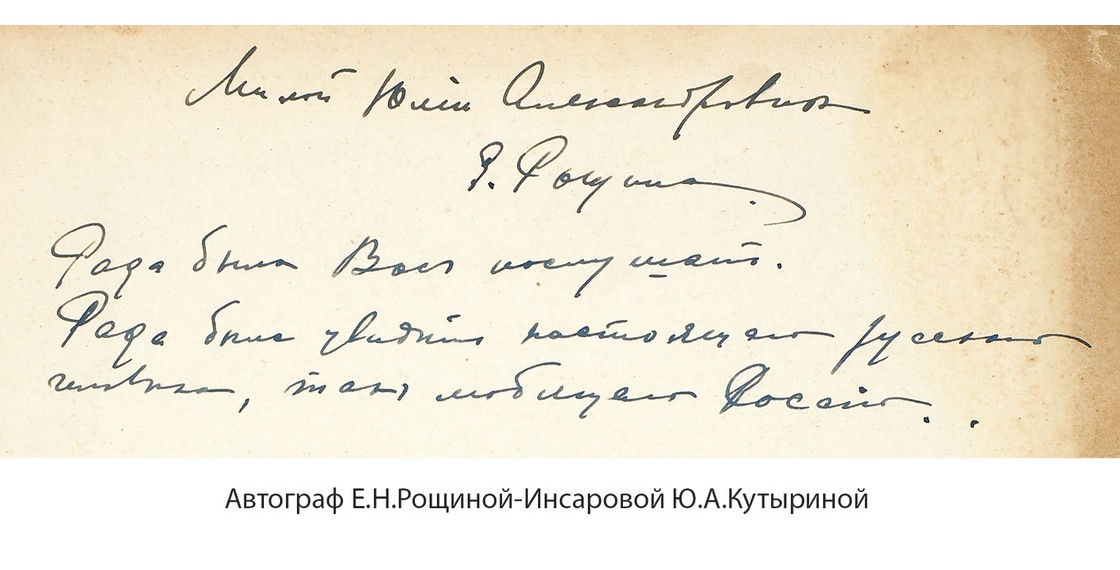 Милой Юлiи Александровне
Е. Рощина.
Рада была Васъ послушать.
Рада была увидѣть настоящаго русскаго
человѣка, такъ любящаго Россiю..
Автограф Е.Н.Рощиной-Инсаровой Ю.А.Кутыриной